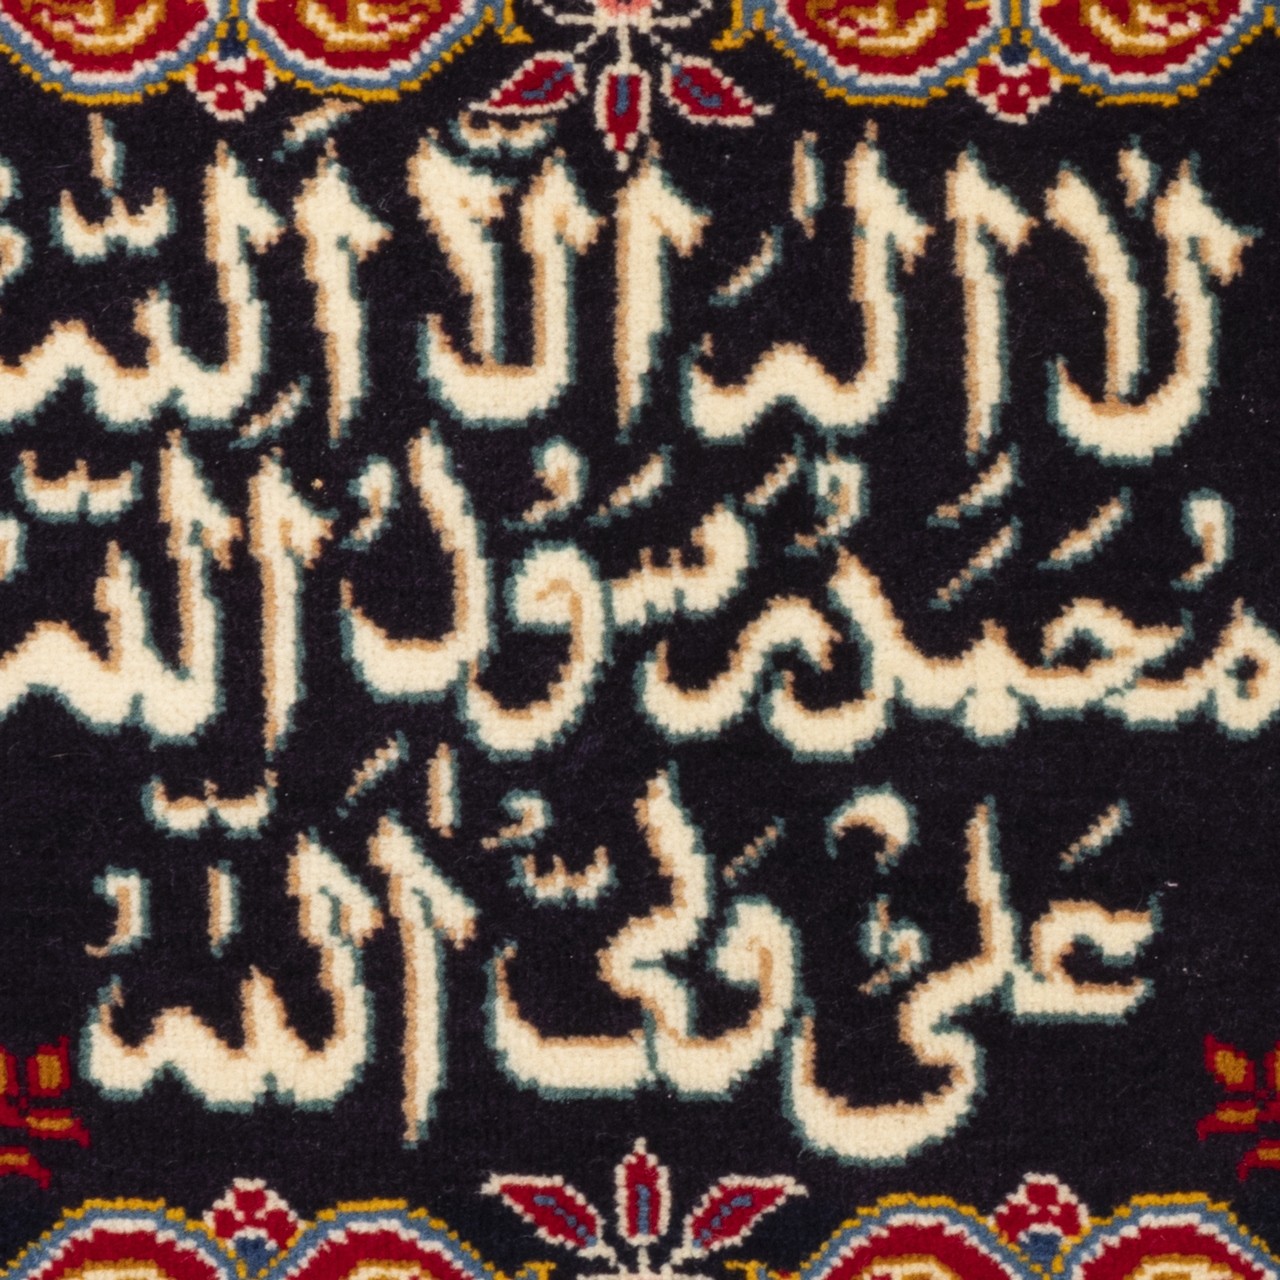 لَا اِلٰهَ اِلَّا اَللّٰه
مُحَمَّدٌ رَسُولُ اَللّٰه
عَلِیٌّ وَلِیُّ اَللّٰهُ